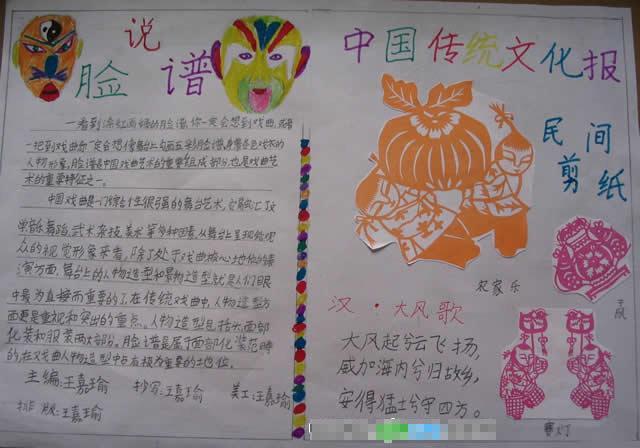 说
脸 谱
一看到涂红画绿的脸谱,你一定会想到戏曲,或者
一提到戏曲你一定会想像舞台上勾画五彩脸谱,身着各色戏衣的
人物形象。脸谱是中国戏曲艺术的重要组成部分,也是戏曲艺
术的重要特征之一。
中国戏曲是一门综合性很强的舞台艺术,它融汇了文
学、音乐、舞蹈、武术、杂技、美术等多种因素,从舞台上呈现给观
众的视觉形象来看,除了处于戏曲核心地位的表
演方面,舞台上的人物造型和景物造型就是人们眼
中最为直接而重要的了。在传统戏曲中,人物造型方
面更是重视和突出的重点。人物造型包括头面部
化装和服装两大部分。脸谱是属于面部化装范畴
的,在戏曲人物造型中占有极为重要的地位。
主编:王嘉瑜 抄写:王嘉瑜 美工:王嘉瑜
排版:王嘉瑜
中国传统文化报
民间
剪纸
农家乐
汉·大风歌
大风起兮云飞扬,
威加海内兮归故乡,
安得猛士兮守四方。
赛灯